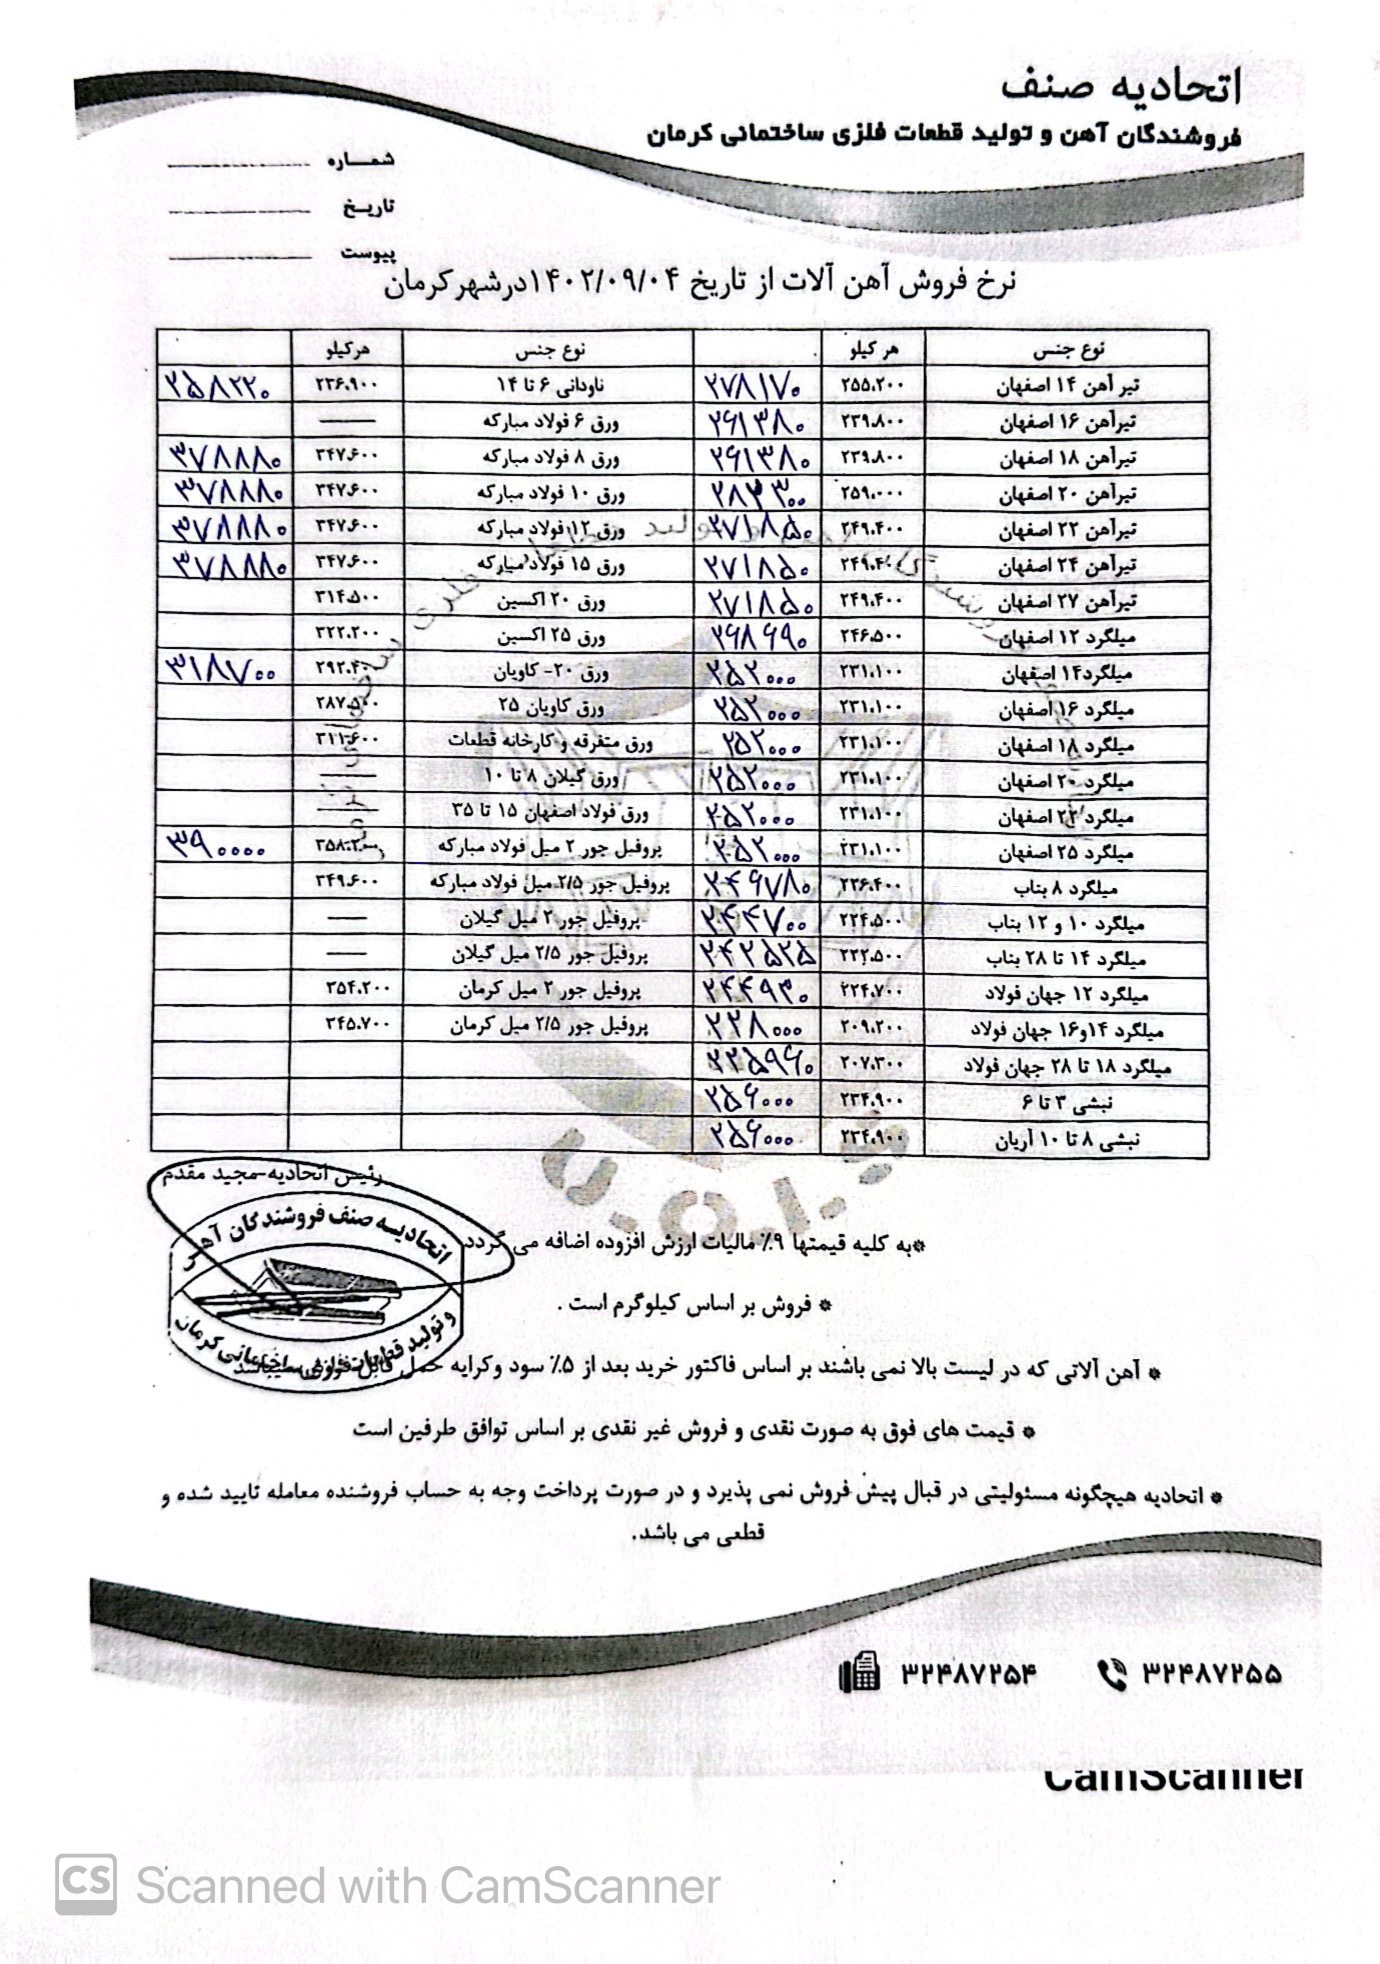 اتحادیه صنف
فروشندگان آهن و تولید قطعات فلزی ساختمانی کرمان
شماره
تاریخ
پیوست
نرخ فروش آهن آلات از تاریخ ۱۴۰۲/۰۹/۰۴درشهرکرمان
نوع جنس هر کیلو نوع جنس هرکیلو
تیر آهن ۱۴ اصفهان ۲۵۵.۲۰۰ ۲۷۸۱۷۰ ناودانی ۶ تا ۱۴ ۲۳۶.۹۰۰ ۲۵۸۲۲۰
تیرآهن ۱۶ اصفهان ۲۳۹.۸۰۰ ۲۶۱۳۸۰ ورق ۶ فولاد مبارکه ——
تیرآهن ۱۸ اصفهان ۲۳۹.۸۰۰ ۲۶۱۳۸۰ ورق ۸ فولاد مبارکه ۳۴۷.۶۰۰ ۳۷۸۸۸۰
تیرآهن ۲۰ اصفهان ۲۵۹.۰۰۰ ورق ۱۰ فولاد مبارکه ۳۴۷.۶۰۰ ۳۷۸۸۸۰
تیرآهن ۲۲ اصفهان ۲۴۹.۴۰۰ ۲۷۱۸۵۰ ورق ۱۲ فولاد مبارکه ۳۴۷.۶۰۰ ۳۷۸۸۸۰
تیرآهن ۲۴ اصفهان ۲۴۹.۴۰۰ ۲۷۱۸۵۰ ورق ۱۵ فولاد مبارکه ۳۴۷.۶۰۰ ۳۷۸۸۸۰
تیرآهن ۲۷ اصفهان ۲۴۹.۴۰۰ ۲۷۱۸۵۰ ورق ۲۰ اکسین ۳۱۴.۵۰۰
میلگرد ۱۲ اصفهان ۲۴۶.۵۰۰ ۲۶۸۶۹۰ ورق ۲۵ اکسین ۳۲۲.۲۰۰
میلگرد۱۴ اصفهان ۲۳۱.۱۰۰ ۲۵۲۰۰۰ ورق ۲۰- کاویان ۲۹۲.۴۰۰ ۳۱۸۷۰۰
میلگرد ۱۶ اصفهان ۲۳۱.۱۰۰ ۲۵۲۰۰۰ ورق کاویان ۲۵ ۲۸۷.۵۰۰
میلگرد ۱۸ اصفهان ۲۳۱.۱۰۰ ۲۵۲۰۰۰ ورق متفرقه و کارخانه قطعات ۳۱۱.۶۰۰
میلگرد ۲۰ اصفهان ۲۳۱.۱۰۰ ۲۵۲۰۰۰ ورق گیلان ۸ تا ۱۰ ——
میلگرد ۲۲ اصفهان ۲۳۱.۱۰۰ ۲۵۲۰۰۰ ورق فولاد اصفهان ۱۵ تا ۳۵ ——
میلگرد ۲۵ اصفهان ۲۳۱.۱۰۰ ۲۵۲۰۰۰ پروفیل جور ۲ میل فولاد مبارکه ۳۹۰۰۰۰
میلگرد ۸ بناب ۲۳۶.۴۰۰ پروفیل جور ۲/۵ میل فولاد مبارکه ۳۴۹.۶۰۰
میلگرد ۱۰ و ۱۲ بناب ۲۲۴.۵۰۰ ۲۴۴۷۰۰ پروفیل جور ۲ میل گیلان ——
میلگرد ۱۴ تا ۲۸ بناب ۲۲۲.۵۰۰ ۲۴۲۵۲۵ پروفیل جور ۲/۵ میل گیلان ——
میلگرد ۱۲ جهان فولاد ۲۲۴.۷۰۰ ۲۴۴۹۳۰ پروفیل جور ۲ میل کرمان ۳۵۴.۲۰۰
میلگرد ۱۴و۱۶ جهان فولاد ۲۰۹.۲۰۰ ۲۲۸۰۰۰ پروفیل جور ۲/۵ میل کرمان ۳۴۵.۷۰۰
میلگرد ۱۸ تا ۲۸ جهان فولاد ۲۰۷.۳۰۰ ۲۲۵۹۶۰
نبشی ۳ تا ۶ ۲۳۴.۹۰۰ ۲۵۶۰۰۰
نبشی ۸ تا ۱۰ آریان ۲۳۴.۹۰۰ ۲۵۶۰۰۰
رئیس اتحادیه-مجید مقدم
اتحادیه صنف فروشندگان آهن
و تولید قطعات فلزی ساختمانی کرمان
*به کلیه قیمتها ۹٪ مالیات ارزش افزوده اضافه می گردد
* فروش بر اساس کیلوگرم است .
* آهن آلاتی که در لیست بالا نمی باشند بر اساس فاکتور خرید بعد از ۵٪ سود وکرایه حمل قابل فروش میباشد
* قیمت های فوق به صورت نقدی و فروش غیر نقدی بر اساس توافق طرفین است
* اتحادیه هیچگونه مسئولیتی در قبال پیش فروش نمی پذیرد و در صورت پرداخت وجه به حساب فروشنده معامله تایید شده و
قطعی می باشد.
۳۲۴۸۷۲۵۵ ۳۲۴۸۷۲۵۴
CamScanner
CS Scanned with CamScanner